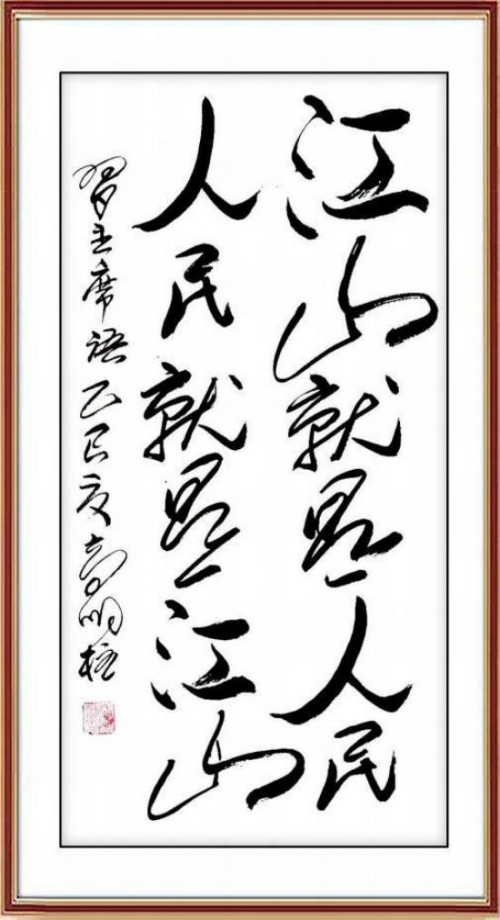 江山就是人民
人民就是江山
习主席语乙巳夏高明柱